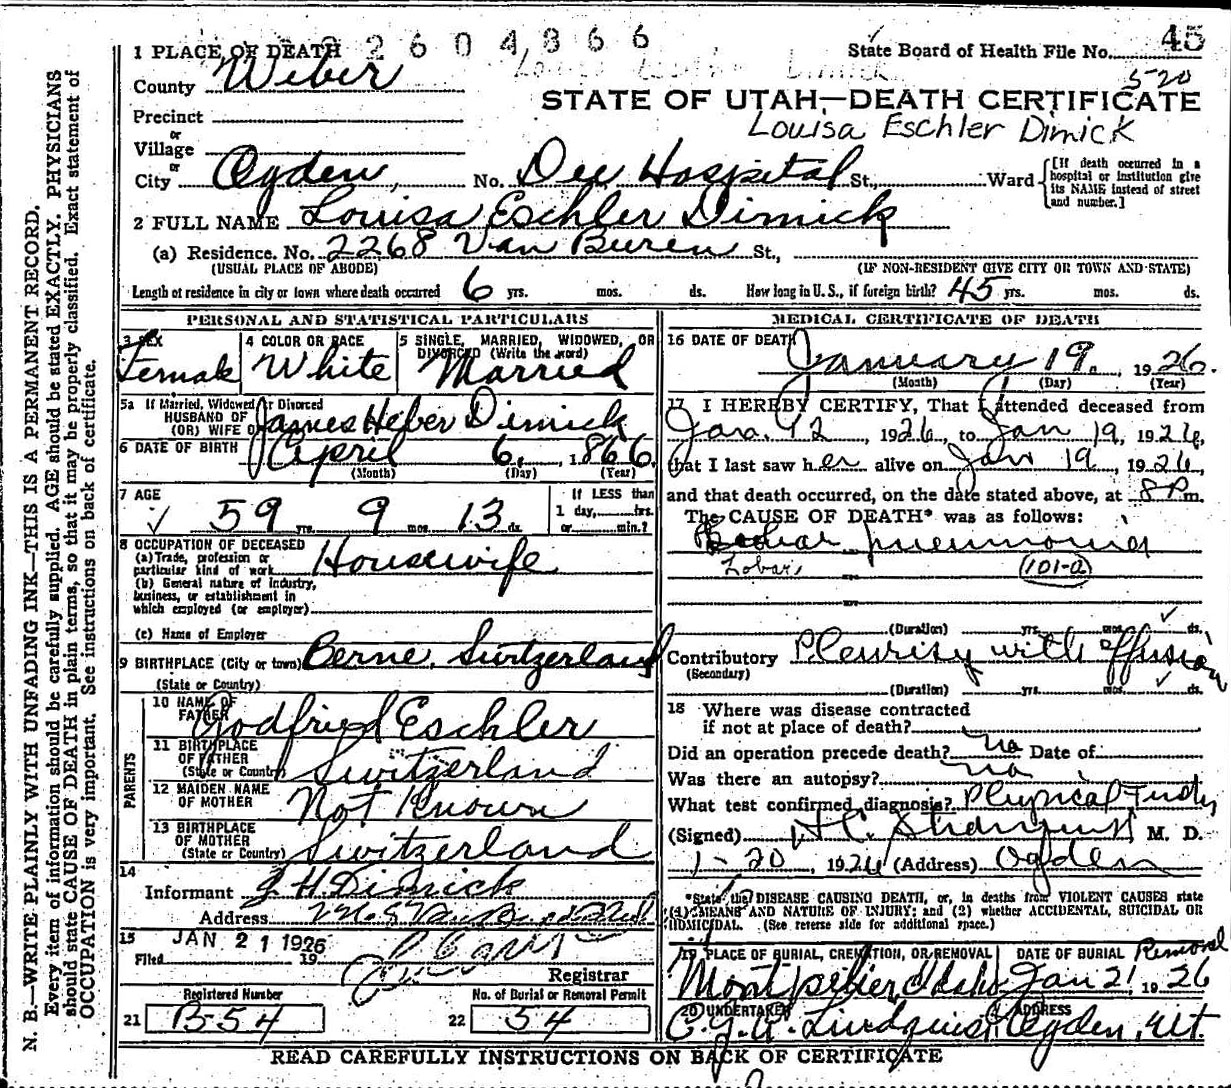 2604866
1 PLACE OF DEATH
State Board of Health File No. 45
County Weber
5-20
STATE OF UTAH—DEATH CERTIFICATE
Precinct
Louisa Eschler Dimick
or
Village
or
City Ogden, No. Dee Hospital St., Ward
[If death occurred in a hospital or institution give its NAME instead of street and number.]
2 FULL NAME Louisa Eschler Dimick
(a) Residence. No. 2268 Van Buren St.,
(USUAL PLACE OF ABODE) (IF NON-RESIDENT GIVE CITY OR TOWN AND STATE)
Length of residence in city or town where death occurred 6 yrs. mos. ds. How long in U. S., if foreign birth? 45 yrs. mos. ds.
PERSONAL AND STATISTICAL PARTICULARS
3 SEX Female
4 COLOR OR RACE White
5 SINGLE, MARRIED, WIDOWED, OR DIVORCED (Write the word) Married
5a If Married, Widowed, or Divorced
HUSBAND OF
(OR) WIFE OF James Heber Dimick
6 DATE OF BIRTH April 6, 1866
(Month) (Day) (Year)
7 AGE 59 yrs. 9 mos. 13 ds.
If LESS than
1 day, hrs.
or min.?
8 OCCUPATION OF DECEASED
(a) Trade, profession or
particular kind of work Housewife
(b) General nature of industry,
business, or establishment in
which employed (or employer)
(c) Name of Employer
9 BIRTHPLACE (City or town) Berne, Switzerland
(State or Country)
PARENTS
10 NAME OF
FATHER Godfried Eschler
11 BIRTHPLACE
OF FATHER
(State or Country) Switzerland
12 MAIDEN NAME
OF MOTHER Not Known
13 BIRTHPLACE
OF MOTHER
(State or Country) Switzerland
14
Informant J H Dimick
Address
15 JAN 21 1926
Filed 19
Registrar
Registered Number
21 B-54
No. of Burial or Removal Permit
22 54
MEDICAL CERTIFICATE OF DEATH
16 DATE OF DEATH January 19, 1926.
(Month) (Day) (Year)
17 I HEREBY CERTIFY, That I attended deceased from
Jan. 12, 1926, to Jan 19, 1926,
that I last saw her alive on Jan 19, 1926,
and that death occurred, on the date stated above, at 8 P m.
The CAUSE OF DEATH* was as follows:
Lobar pneumonia
Lobar 101-a
(Duration) yrs. mos. ds.
Contributory Pleurisy with effusion
(Secondary)
(Duration) yrs. mos. ds.
18 Where was disease contracted
if not at place of death?
Did an operation precede death? no Date of
Was there an autopsy? no
What test confirmed diagnosis? Physical
(Signed) M. D.
1-20, 1926 (Address) Ogden
*State the DISEASE CAUSING DEATH, or, in deaths from VIOLENT CAUSES state
(1) MEANS AND NATURE OF INJURY; and (2) whether ACCIDENTAL, SUICIDAL OR
HOMICIDAL. (See reverse side for additional space.)
19 PLACE OF BURIAL, CREMATION, OR REMOVAL DATE OF BURIAL Removal
Montpelier, Idaho Jan 21 1926
20 UNDERTAKER ADDRESS
Lindquist, Ogden, Ut.
READ CAREFULLY INSTRUCTIONS ON BACK OF CERTIFICATE
N. B.—WRITE PLAINLY WITH UNFADING INK—THIS IS A PERMANENT RECORD.
Every item of information should be carefully supplied. AGE should be stated EXACTLY. PHYSICIANS
should state CAUSE OF DEATH in plain terms, so that it may be properly classified. Exact statement of
OCCUPATION is very important. See instructions on back of certificate.